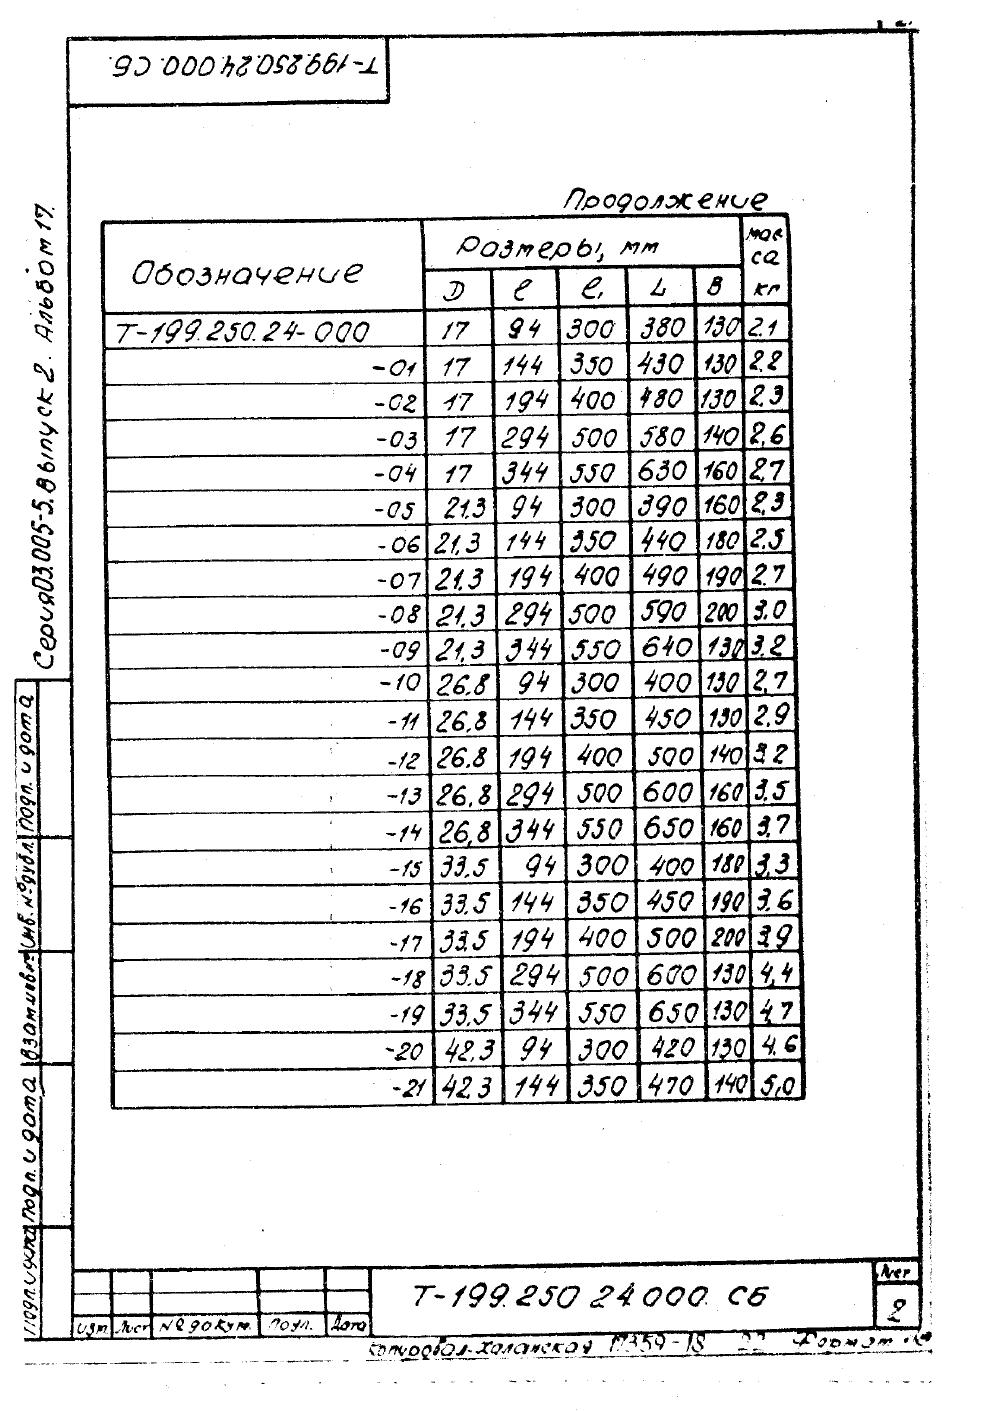 Т-199.250.24.000.СБ.
Продолжение
Обозначение Размеры, мм мас са кг
D ℓ ℓ₁ L В
Т-199.250.24-000 17 94 300 380 130 2.1
-01 17 144 350 430 130 2.2
-02 17 194 400 480 130 2.3
-03 17 294 500 580 140 2.6
-04 17 344 550 630 160 2,7
-05 21.3 94 300 390 160 2,3
-06 21,3 144 350 440 180 2.5
-07 21.3 194 400 490 190 2.7
-08 21.3 294 500 590 200 3.0
-09 21,3 344 550 640 130 3.2
-10 26.8 94 300 400 130 2,7
-11 26,8 144 350 450 130 2.9
-12 26.8 194 400 500 140 3.2
-13 26,8 294 500 600 160 3.5
-14 26,8 344 550 650 160 3.7
-15 33.5 94 300 400 180 3,3
-16 33.5 144 350 450 190 3.6
-17 33.5 194 400 500 200 3,9
-18 33.5 294 500 600 130 4,4
-19 33,5 344 550 650 130 4,7
-20 42,3 94 300 420 130 4.6
-21 42.3 144 350 470 140 5,0
Серия 03.005-5. Выпуск 2. Альбом 17.
Подп. и дата
Инв. № дубл.
Взам. инв. №
Подп. и дата
Изм Лист № докум. Подп. Дата
Т-199.250 24.000. СБ
Лист
2
Копировал-Халанская 17359-18 22 Формат